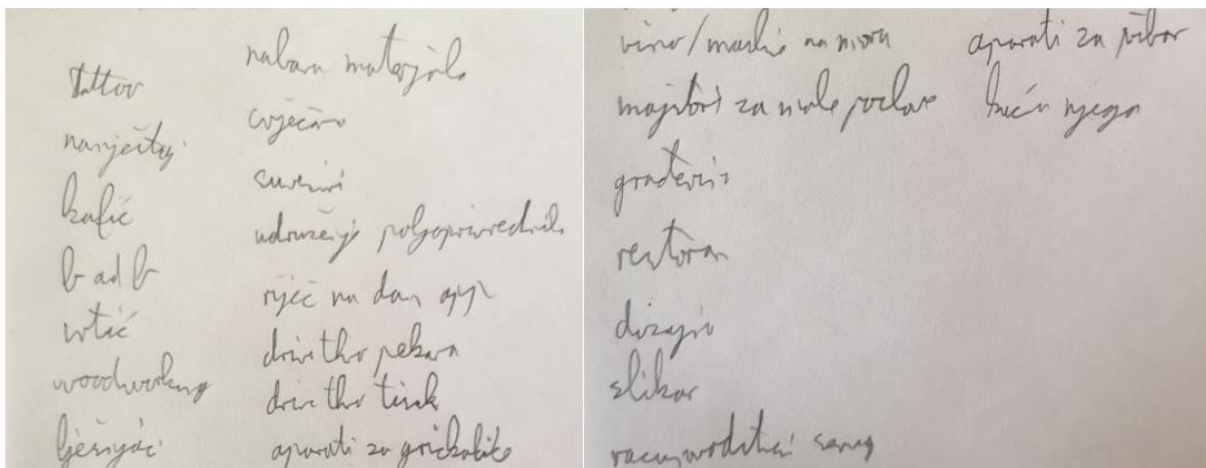 Tattoo
namještaj
kafić
b and b
vrtić
woodworking
lješnjaci
nabava materijala
cvjećara
suveniri
udruženje poljoprivrednika
riječ na dan app
drive thru pekara
drive thru tisak
aparati za grickalice
vino/masline na moru
za male poslove
građevina
restoran
dizajn
slikar
računovodstveni servis
aparati za ribar
kućna njega